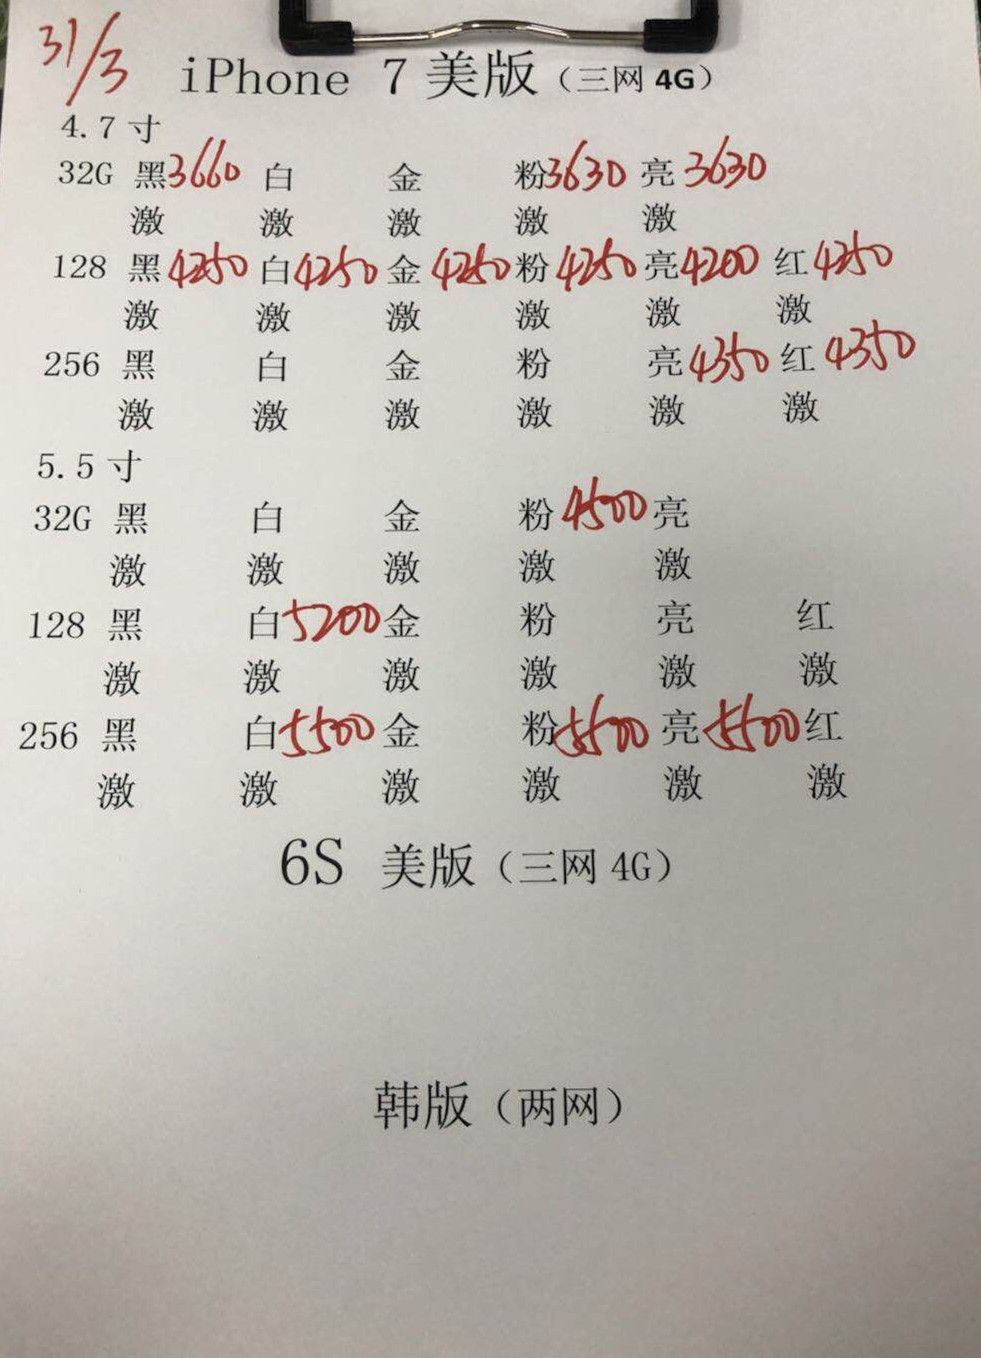 31/3
iPhone 7 美版（三网 4G）
4.7 寸
32G 黑 3660 白 金 粉 3630 亮 3630
激 激 激 激 激
128 黑 4250 白 4250 金 4250 粉 4250 亮 4200 红 4250
激 激 激 激 激 激
256 黑 白 金 粉 亮 4350 红 4350
激 激 激 激 激 激
5.5 寸
32G 黑 白 金 粉 4500 亮
激 激 激 激 激
128 黑 白 5200 金 粉 亮 红
激 激 激 激 激 激
256 黑 白 5500 金 粉 5500 亮 5500 红
激 激 激 激 激 激
6S 美版（三网 4G）
韩版（两网）